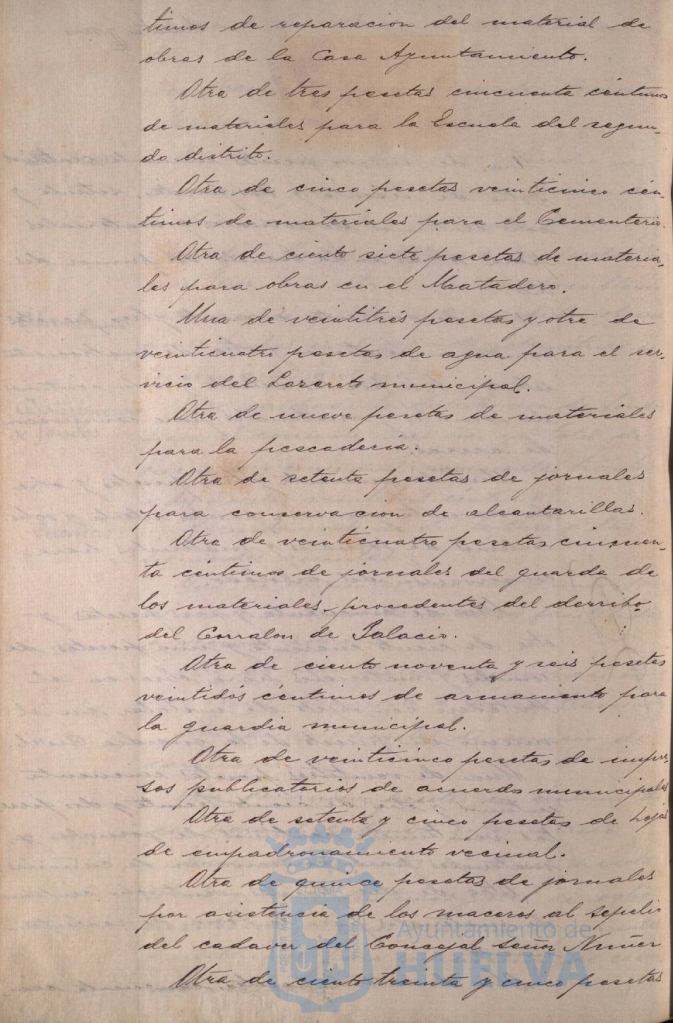 timos de reparacion del material de
obras de la Casa Ayuntamiento.
Otra de tres pesetas cincuenta céntimos
de materiales para la Escuela del segun-
do distrito.
Otra de cinco pesetas veinticinco cén-
timos de materiales para el Cementerio.
Otra de ciento siete pesetas de materia-
les para obras en el Matadero.
Una de veintitrés pesetas y otra de
veinticuatro pesetas de agua para el ser-
vicio del Lazareto municipal.
Otra de nueve pesetas de materiales
para la pescadería.
Otra de setenta pesetas de jornales
para conservacion de alcantarillas.
Otra de veinticuatro pesetas cincuen-
ta céntimos de jornales del guarda de
los materiales procedentes del derribo
del Corralon de Palacio.
Otra de ciento noventa y seis pesetas
veintidós céntimos de armamento para
la guardia municipal.
Otra de veinticinco pesetas de impre-
sos publicatorios de acuerdo municipales
Otra de setenta y cinco pesetas de hojas
de empadronamiento vecinal.
Otra de quince pesetas de jornales
por asistencia de los maceros al sepelio
del cadaver del Concejal señor Nuñez
Otra de ciento treinta y cinco pesetas
Ayuntamiento de
HUELVA